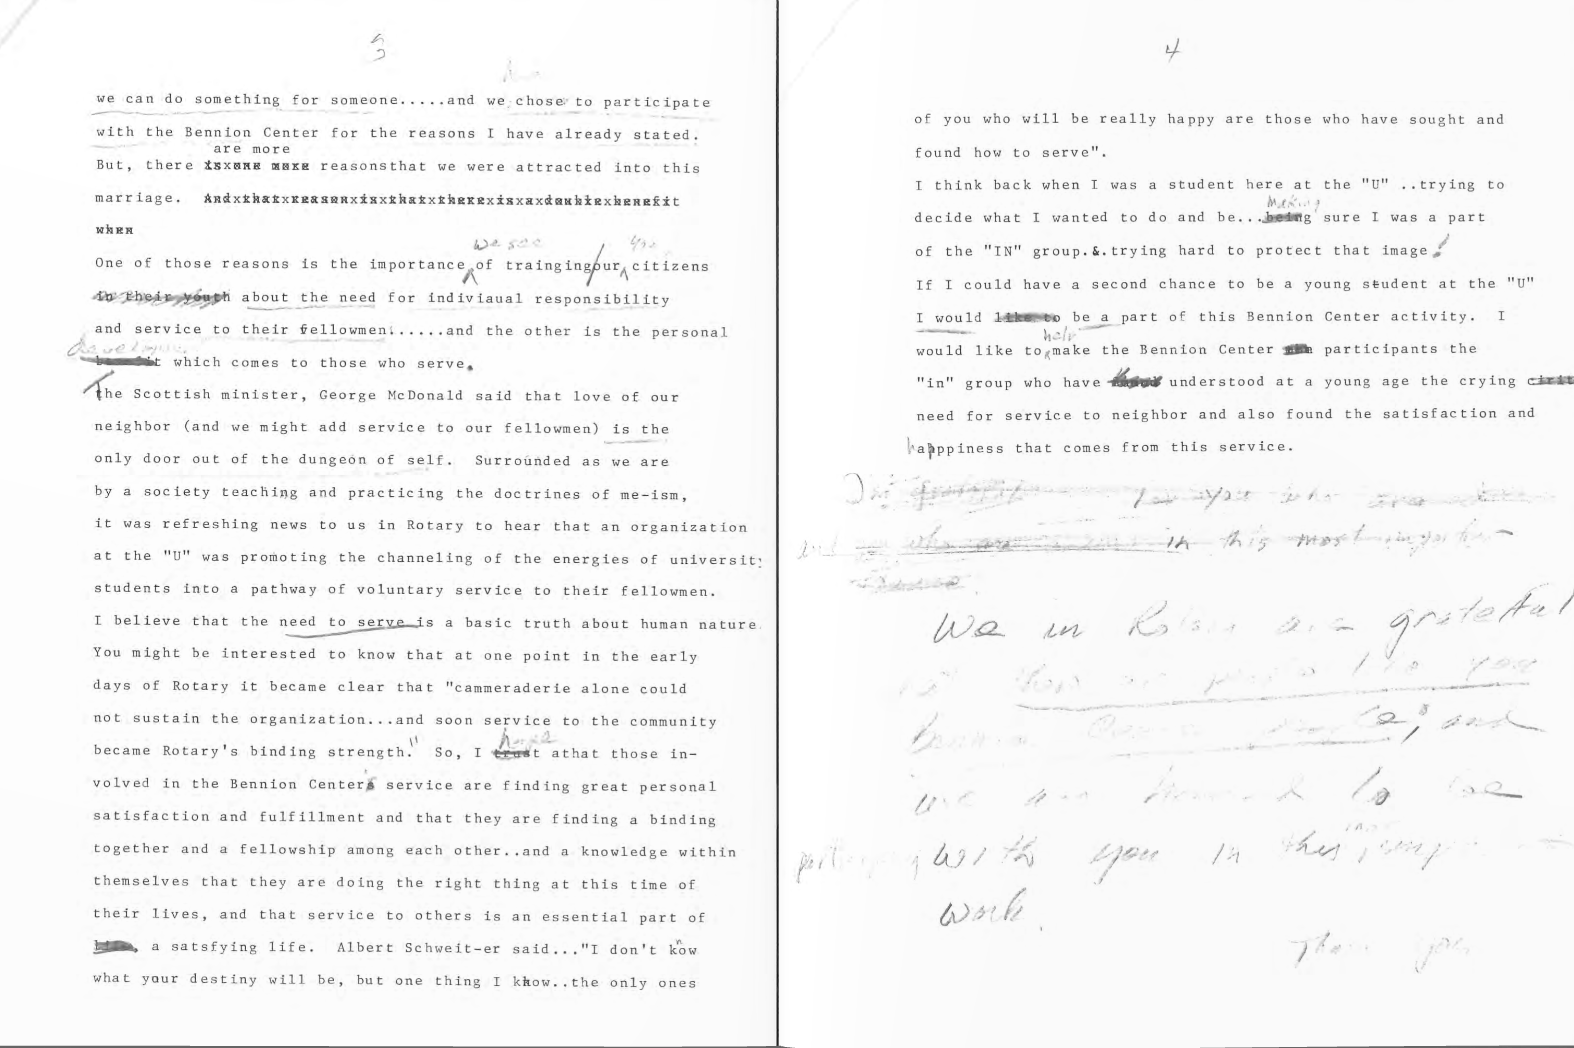 3
we can do something for someone.....and we chose to participate
with the Bennion Center for the reasons I have already stated.
are more
But, there isxone more reasonsthat we were attracted into this
marriage. Andxthatxreasonxisxthatxtherexisxaxdoublexbenefit
when
we see you
One of those reasons is the importance of traingingour citizens
in their youth about the need for indiviaual responsibility
and service to their fellowmen......and the other is the personal
which comes to those who serve.
The Scottish minister, George McDonald said that love of our
neighbor (and we might add service to our fellowmen) is the
only door out of the dungeon of self. Surrounded as we are
by a society teaching and practicing the doctrines of me-ism,
it was refreshing news to us in Rotary to hear that an organization
at the "U" was promoting the channeling of the energies of university
students into a pathway of voluntary service to their fellowmen.
I believe that the need to serve is a basic truth about human nature.
You might be interested to know that at one point in the early
days of Rotary it became clear that "cammeraderie alone could
not sustain the organization...and soon service to the community
hope
became Rotary's binding strength." So, I trust athat those in-
volved in the Bennion Center service are finding great personal
satisfaction and fulfillment and that they are finding a binding
together and a fellowship among each other..and a knowledge within
themselves that they are doing the right thing at this time of
their lives, and that service to others is an essential part of
a satsfying life. Albert Schweit-er said..."I don't know
what your destiny will be, but one thing I know..the only ones
4
of you who will be really happy are those who have sought and
found how to serve".
I think back when I was a student here at the "U" ..trying to
Making
decide what I wanted to do and be...being sure I was a part
of the "IN" group.&.trying hard to protect that image!
If I could have a second chance to be a young student at the "U"
I would like to be a part of this Bennion Center activity. I
help
would like to make the Bennion Center participants the
"in" group who have understood at a young age the crying
need for service to neighbor and also found the satisfaction and
happiness that comes from this service.
in this most
We in Rotary are grateful
you
and
we are to be
with you in this
work.
Thank you